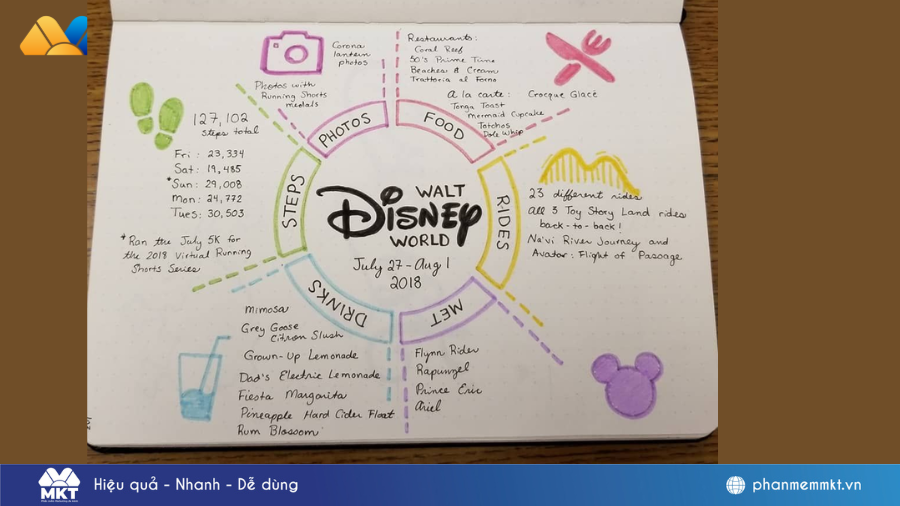 WALT
DISNEY
WORLD
July 27 - Aug 1
2018
PHOTOS
Corona
lantern
photos
Photos with
Running Shorts
medals
FOOD
Restaurants:
Coral Reef
50's Prime Time
Beaches & Cream
Trattoria al Forno
A la carte: Croque Glacé
Tonga Toast
Mermaid Cupcake
Totchos
Dole Whip
RIDES
23 different rides
All 3 Toy Story Land rides
back-to-back!
Na'vi River Journey and
Avatar: Flight of Passage
MET
Flynn Rider
Rapunzel
Prince Eric
Ariel
DRINKS
Mimosa
Grey Goose
Citron Slush
Grown-Up Lemonade
Dad's Electric Lemonade
Fiesta Margarita
Pineapple Hard Cider Float
Rum Blossom
STEPS
127,102
steps total
Fri: 23,334
Sat: 19,485
*Sun: 29,008
Mon: 24,772
Tues: 30,503
*Ran the July 5K for
the 2018 Virtual Running
Shorts Series
MKT
Hiệu quả - Nhanh - Dễ dùng
phanmemmkt.vn